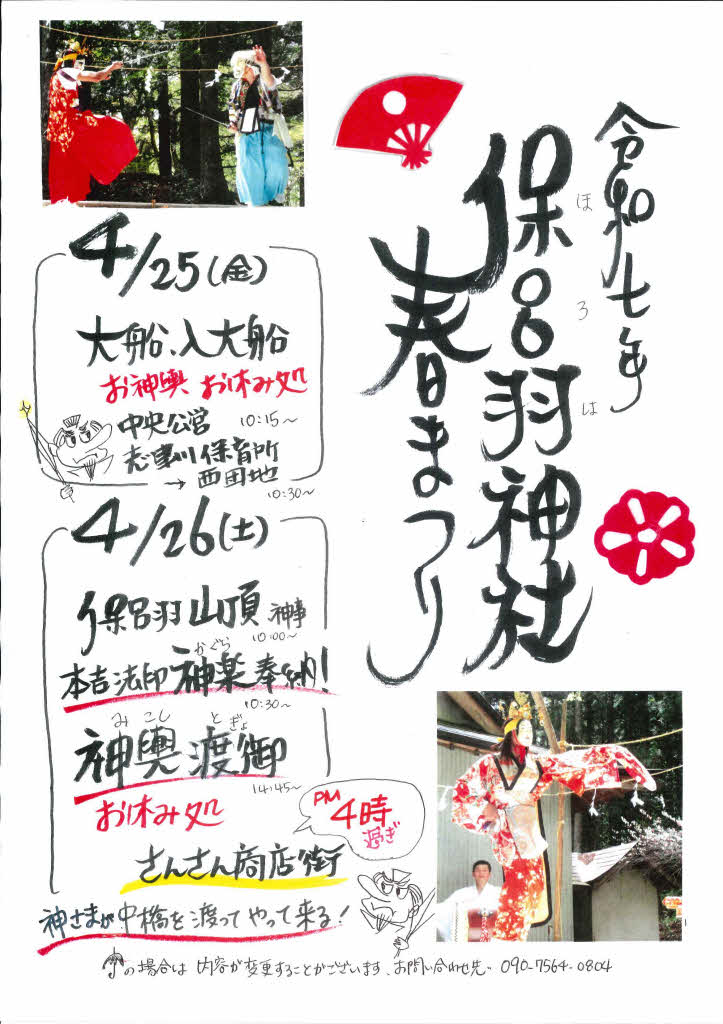 令和七年
保呂羽神社
ほろは
春まつり
4/25(金)
大船、入大船
お神輿 お休み処
中央公営 10:15~
志津川保育所
→ 西団地
10:30~
4/26(土)
保呂羽山頂 神事
10:00~
かぐら
本吉法印神楽奉納!
10:30~
みこし とぎょ
神輿渡御
14:45~
お休み処
PM
4時
過ぎ
さんさん商店街
神さまが中橋を渡ってやって来る!
の場合は 内容が変更することがございます、お問い合わせ先・090-7564-0804